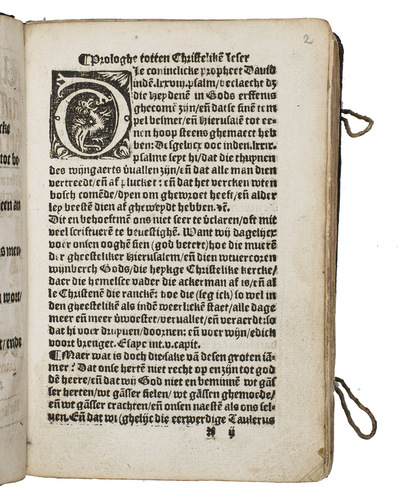 2
¶Prologhe totten Christelikē leser
Ie coninclicke propheet Dauid
indē.lxxviij.psalm/beclaecht dz
die Heydenē in Gods erffenis
ghecomē zijn/eñ dat se sinē tem
pel besmet/eñ Hierusalē tot ee-
nen hoop steens ghemaect heb
ben: Desgelijcx ooc inden.lxxix.
psalme seyt hi/dat die thuynen
des wijngaerts veruallen zijn/eñ dat alle man dien
vertreedt/eñ af plucket: eñ dat het vercken wten
bosch comēde/dyen om ghewroet heeft/eñ alder
ley beestē dien af gheweydt hebben.
Dit en behoeftmē ons niet seer te verclaren/oft met
veel scriftuerē te beuestighē. Want wij dagelijcx
voer onsen ooghē sien (god betert) hoe die muerē
der gheestelijker Hierusalem/eñ dien wtuercoren
wijnberch Gods/die heylige Christelike kercke/
daer die hemelsce vader die ackerman af is/eñ al
le Christenē die ranckē: hoe die (seg ick) so wel in
den gheestelikē als inden weerlickē staet/alle dage
meer eñ meer verwoestet/veruallet/eñ veraerdt: so
dat hi voer druyuen/doornen: eñ voer wijn/edick
voort brenget. Esaye int .v. capit.
¶Maer wat is doch die sake vā desen groten iā-
mer? Dat onse hertē niet recht op en zijn tot god
dē heere/eñ dat wij God niet en beminnē wt gās
ser herten/wt gāsser sielen/wt gāssen ghemoede/
eñ wt gāsser crachten/eñ onsen naestē als ons sel-
uen. Eñ dat wi (ghelijc die eerwerdige Taulerus
ij